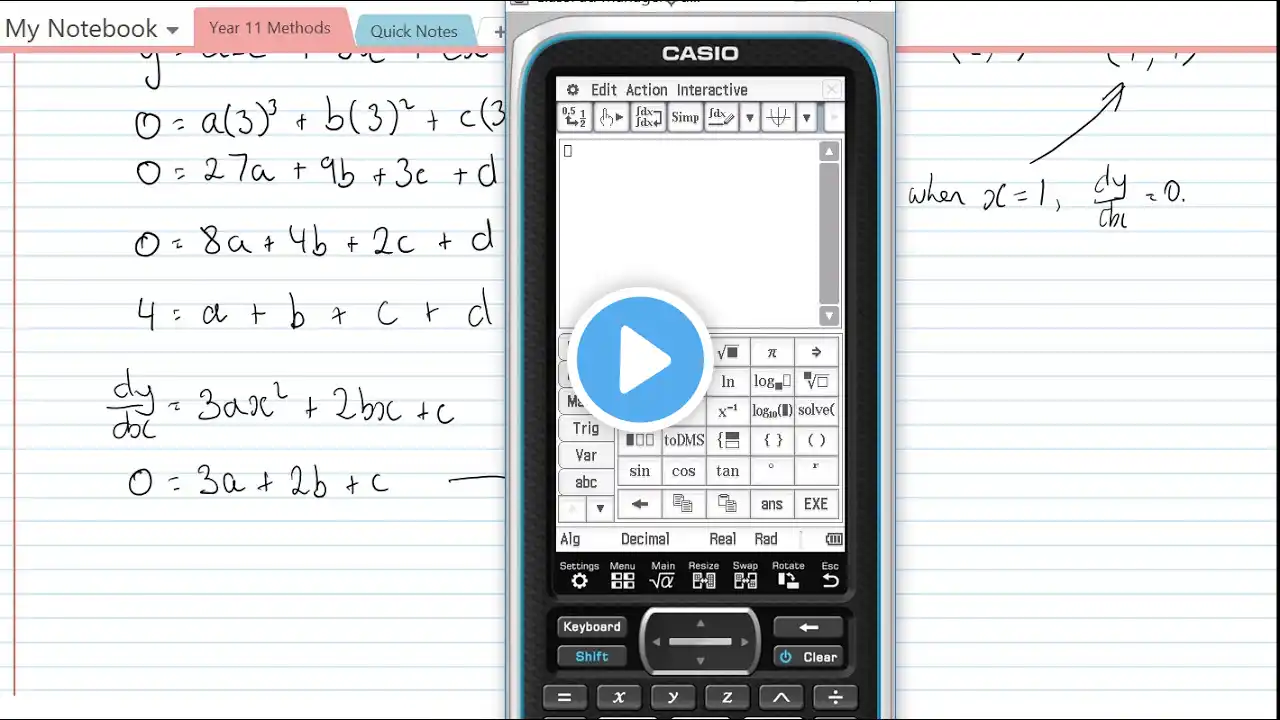 My Notebook
Year 11 Methods
Quick Notes
+
0 = a(3)³ + b(3)² + c(3
0 = 27a + 9b + 3c + d
0 = 8a + 4b + 2c + d
4 = a + b + c + d
dy/dx = 3ax² + 2bx + c
0 = 3a + 2b + c
when x = 1, dy/dx = 0.
CASIO
Edit Action Interactive
Simp
√ π ⇒
ln log
x⁻¹ log₁₀( ) solve(
toDMS { } ( )
Trig
Var
abc
sin cos tan ° r
ans EXE
Alg Decimal Real Rad
Settings Menu Main Resize Swap Rotate Esc
Keyboard
Shift
Clear
= x y z ^ ÷